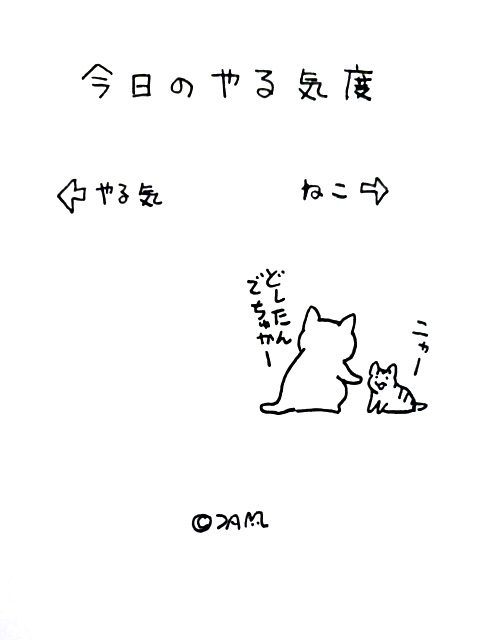 今日のやる気度
⇦やる気
ねこ⇨
どしたん
でちゅかー
ニャー